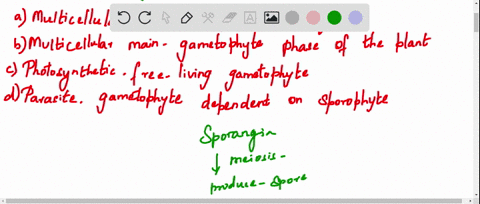 a) Multicellul
b) Multicellular main - gametophyte phase of the plant
c) Photosynthetic . free - living gametophyte
d) Parasite . gametophyte dependent on sporophyte
Sporangia
meiosis -
produce - spore